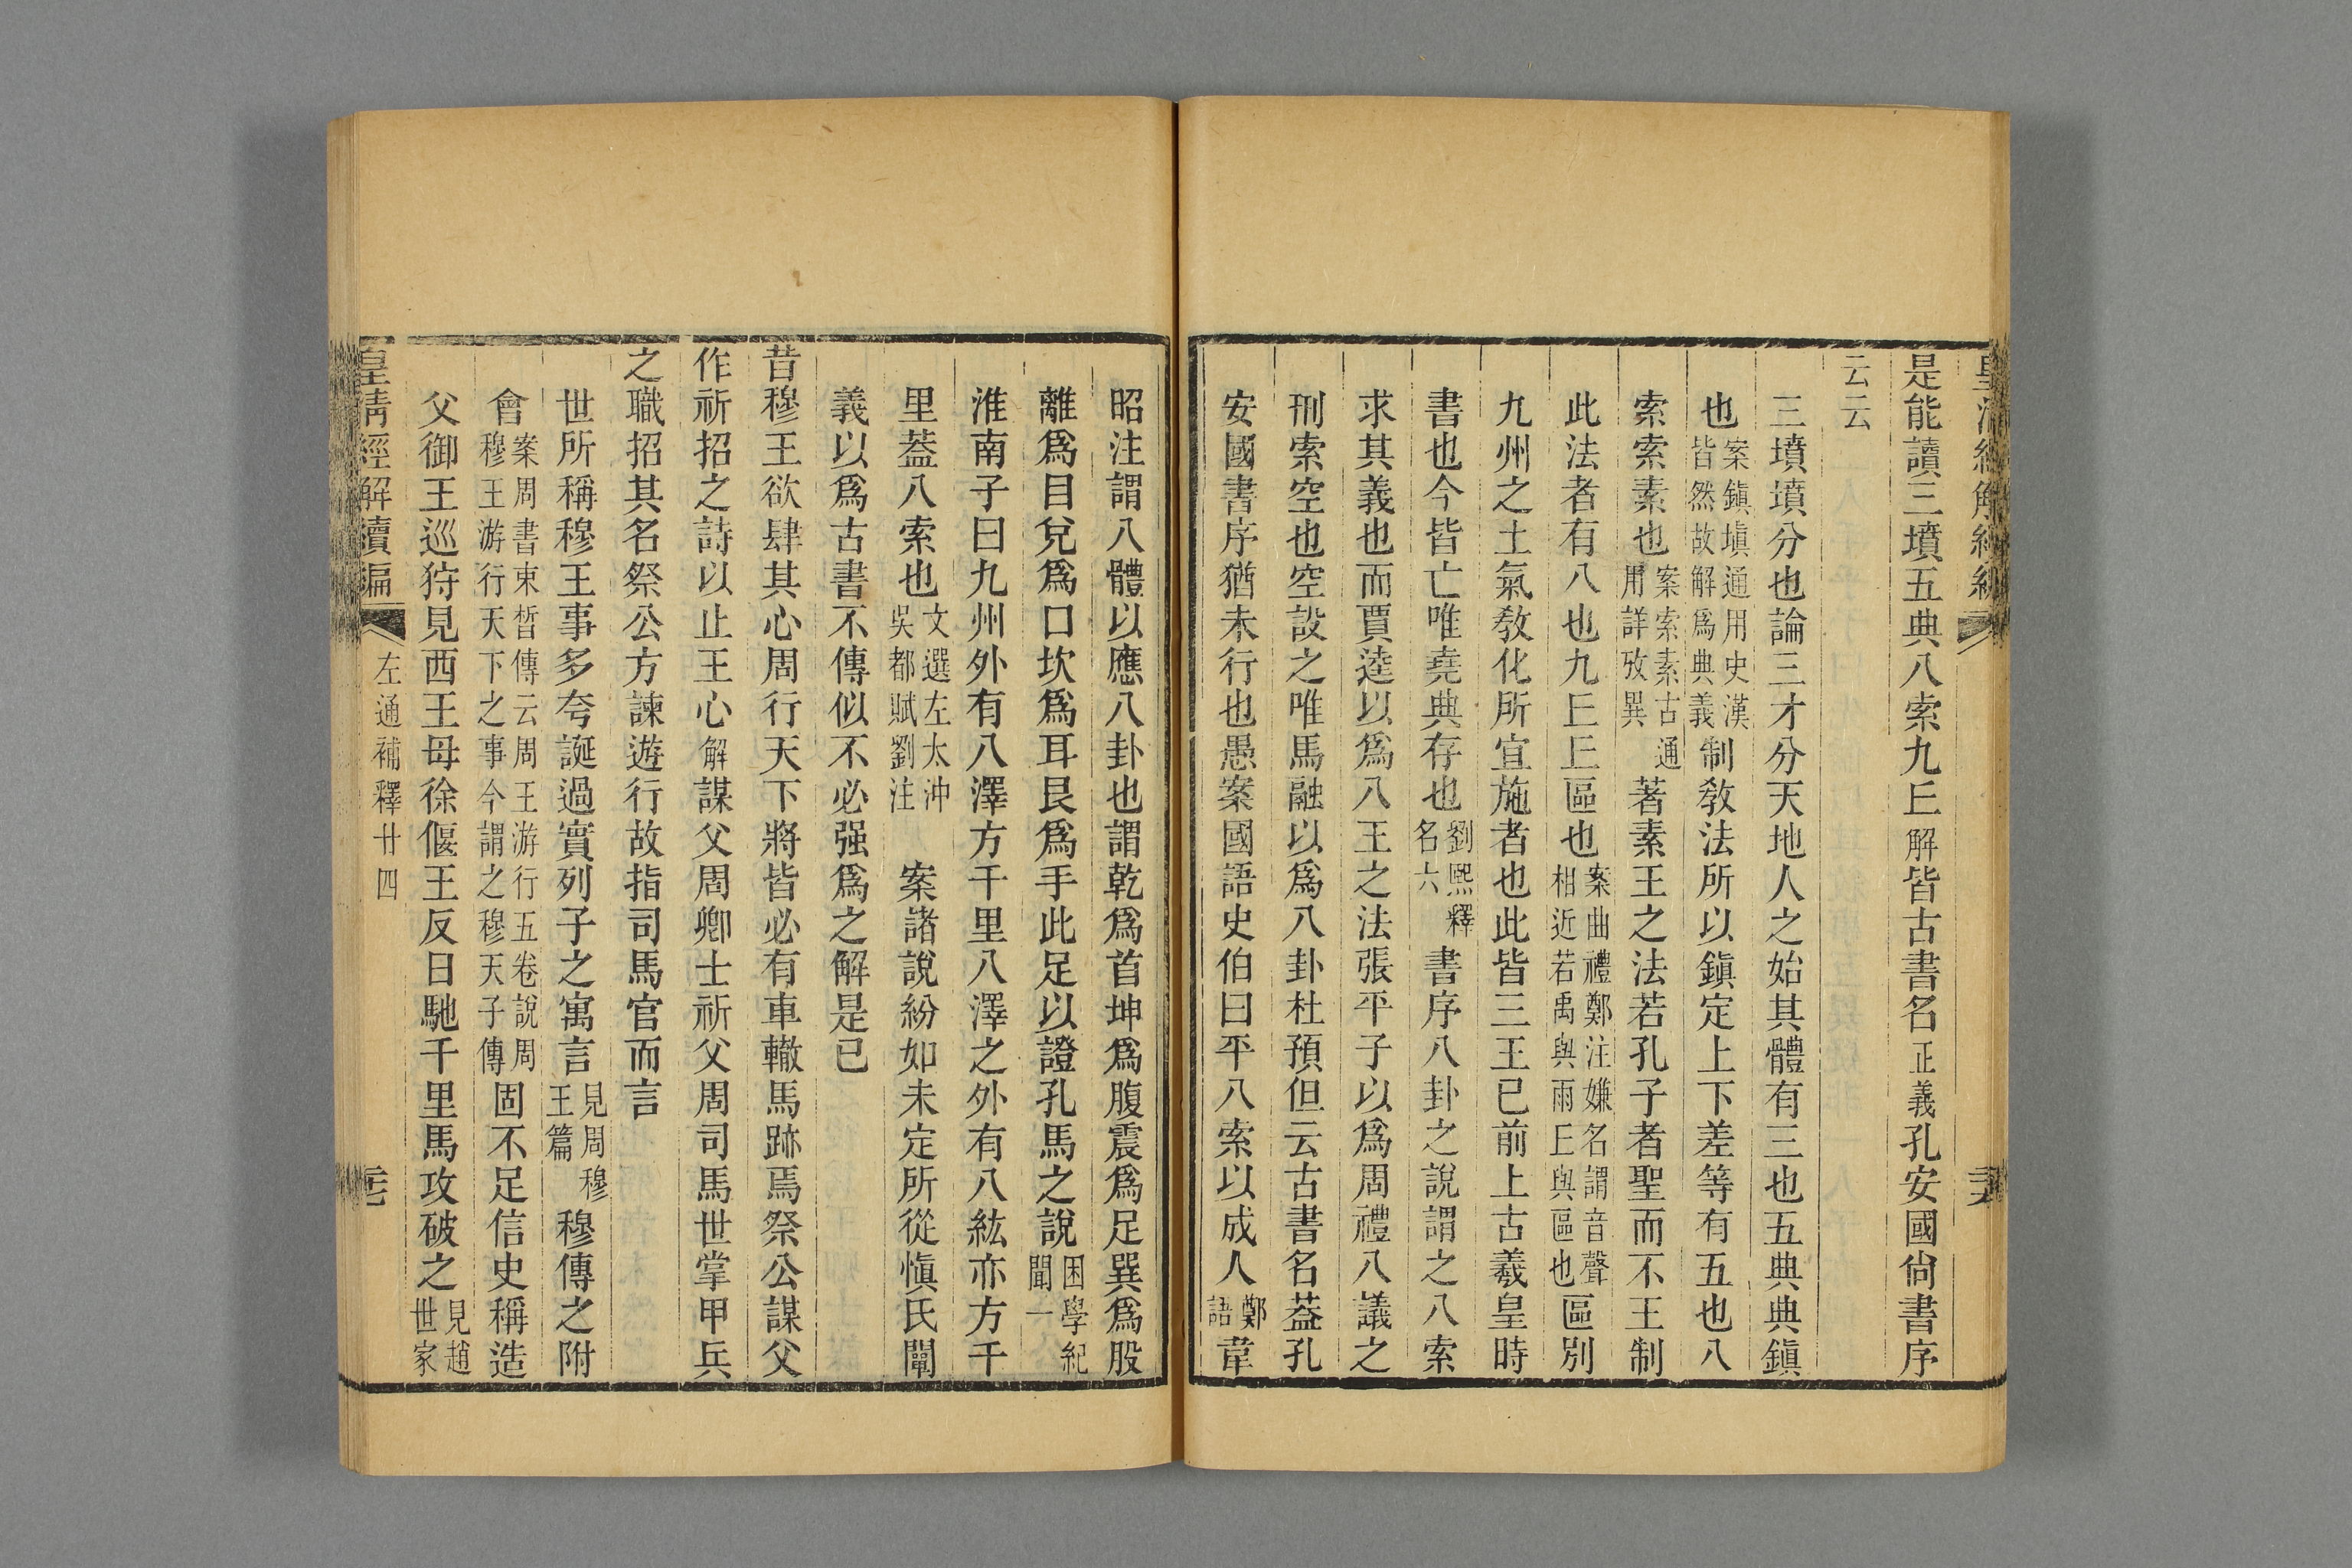 是能讀三墳五典八索九𠀉解皆古書名正義孔安國尙書序
云云
三墳墳分也論三才分天地人之始其體有三也五典典鎭
也案鎭塡通用史漢皆然故解爲典義制敎法所以鎭定上下差等有五也八
索索素也案索素古通用詳攷異著素王之法若孔子者聖而不王制
此法者有八也九𠀉𠀉區也案曲禮鄭注嫌名謂音聲相近若禹與雨𠀉與區也區別
九州之土氣敎化所宜施者也此皆三王已前上古羲皇時
書也今皆亡唯堯典存也劉熙釋名六書序八卦之說謂之八索
求其義也而賈逵以爲八王之法張平子以爲周禮八議之
刑索空也空設之唯馬融以爲八卦杜預但云古書名葢孔
安國書序猶未行也愚案國語史伯曰平八索以成人鄭語韋
昭注謂八體以應八卦也謂乾爲首坤爲腹震爲足巽爲股
離爲目兌爲口坎爲耳艮爲手此足以證孔馬之說困學紀聞一
淮南子曰九州外有八澤方千里八澤之外有八紘亦方千
里葢八索也文選左太沖吳都賦劉注案諸說紛如未定所從愼氏闡
義以爲古書不傳似不必强爲之解是已
昔穆王欲肆其心周行天下將皆必有車轍馬跡焉祭公謀父
作祈招之詩以止王心解謀父周卿士祈父周司馬世掌甲兵
之職招其名祭公方諫遊行故指司馬官而言
世所稱穆王事多夸誕過實列子之寓言見周穆王篇穆傳之附
會案周書束晳傳云周王游行五卷說周穆王游行天下之事今謂之穆天子傳固不足信史稱造
父御王巡狩見西王母徐偃王反日馳千里馬攻破之見趙世家
皇淸經解續編
左通補釋廿四